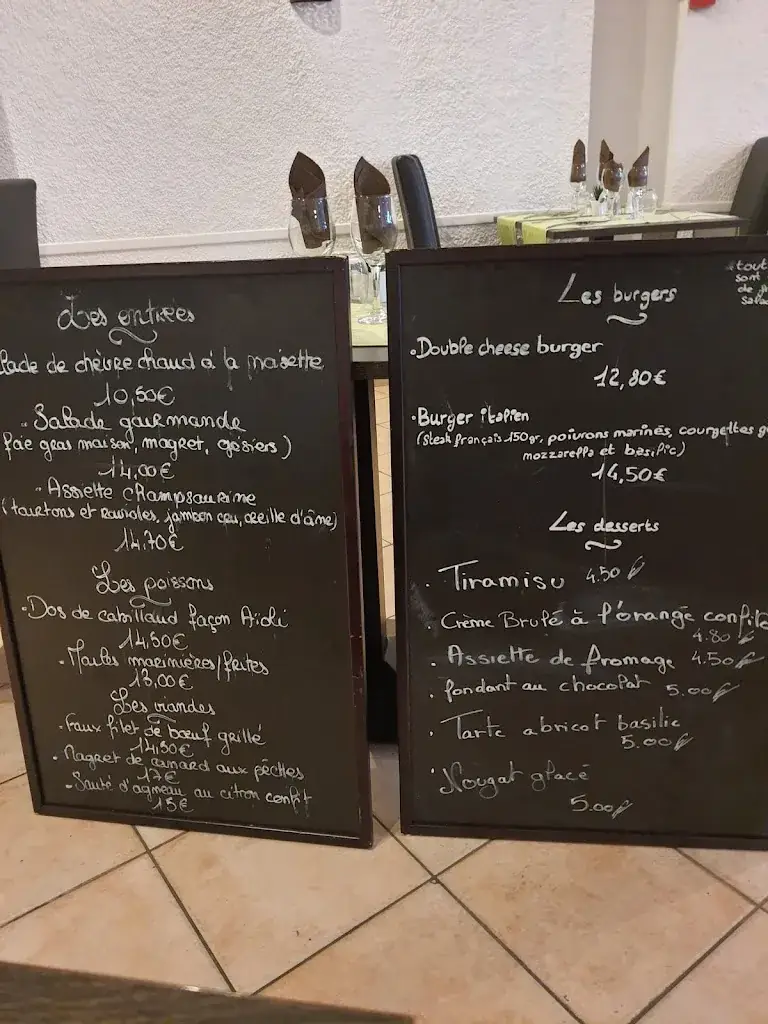 Les entrées
lade de chèvre chaud à la noisette
10,50€
- Salade gourmande
foie gras maison, magret, gésiers)
14,00€
- Assiette champsaurine
(tourtons et ravioles, jambon cru, oreille d'âne)
14,70€
Les poissons
- Dos de cabillaud façon Aïoli
14,50€
- Moules marinières/frites
13,00€
Les viandes
- Faux filet de bœuf grillé
14,50€
- Magret de canard aux pêches
17€
- Sauté d'agneau au citron confit
15€
Les burgers
tout
sont
de
Sala
- Double cheese burger
12,80€
- Burger italien
(steak français 150gr, poivrons marinés, courgettes g
mozzarella et basilic)
14,50€
Les desserts
- Tiramisu 4.50€
- Crème Brulé à l'orange confite
4.80€
- Assiette de fromage 4.50€
- fondant au chocolat 5.00€
- Tarte abricot basilic
5.00€
- Nougat glacé
5.00€